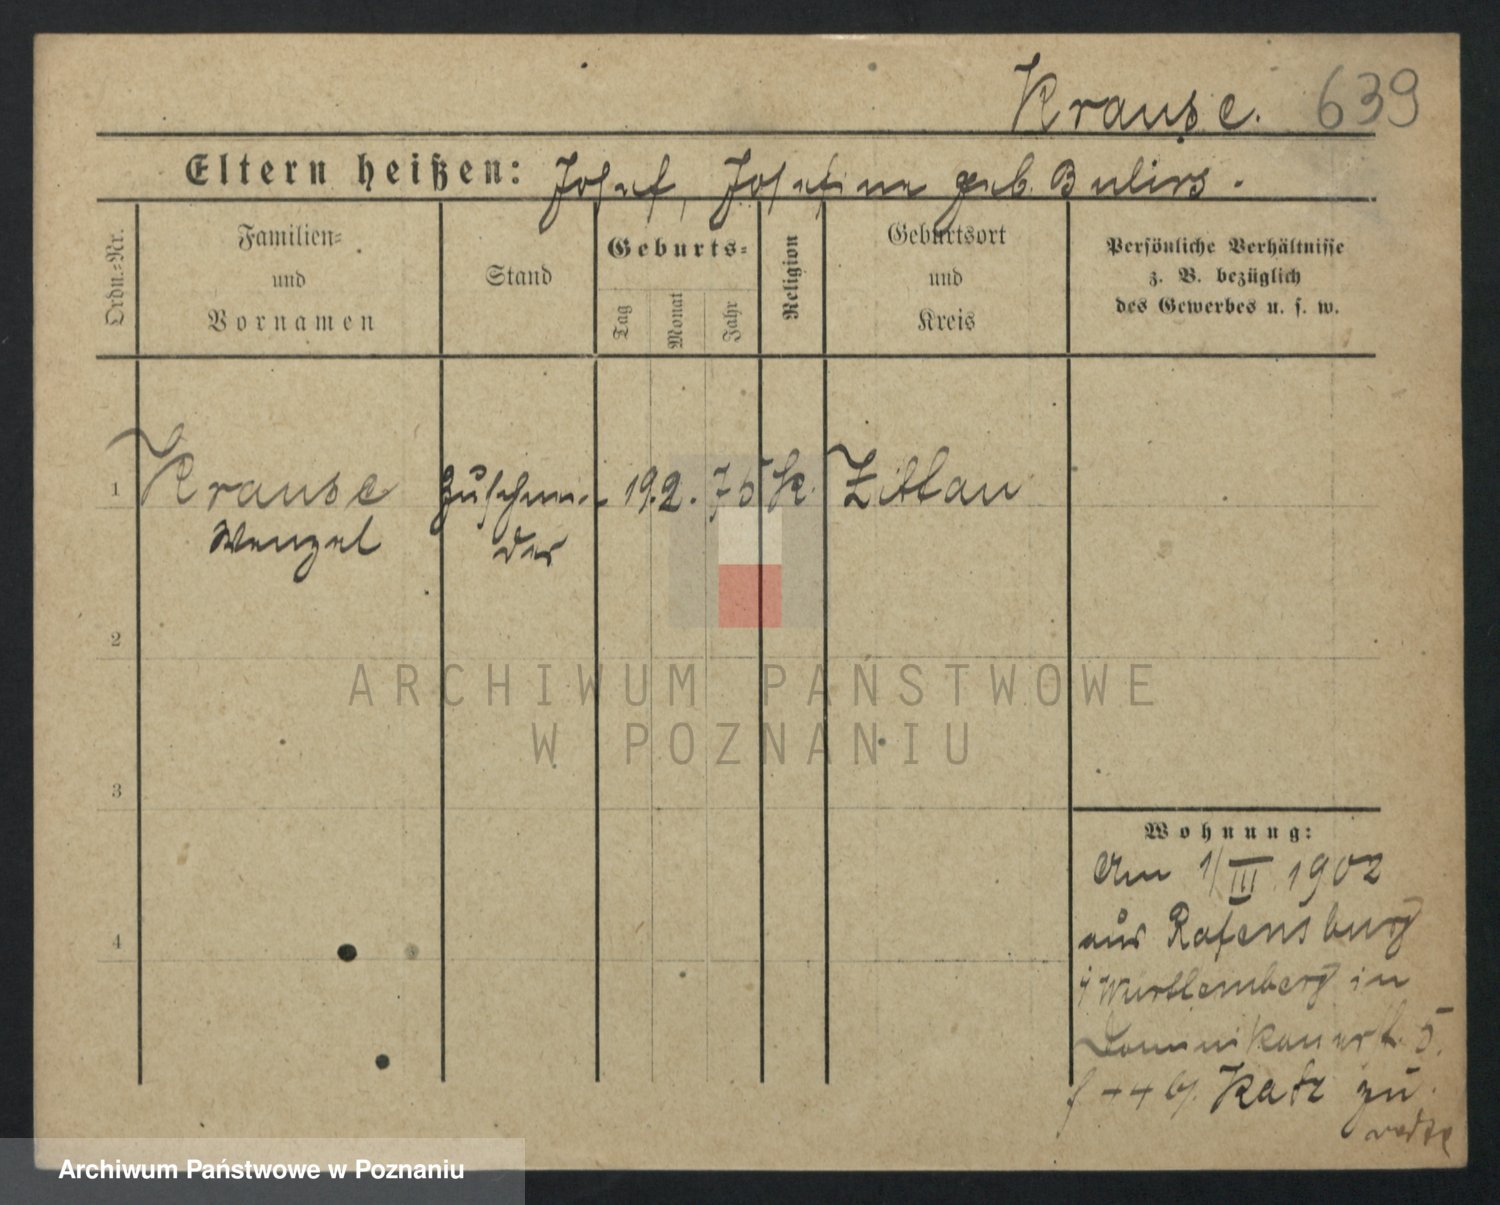 Krause. 639
Eltern heißen: Josef, Josefine geb. Bulirs.
Ordn.=Nr.
Familien=
und
Vornamen
Stand
Geburts=
Tag
Monat
Jahr
Religion
Geburtsort
und
Kreis
Persönliche Verhältnisse
z. B. bezüglich
des Gewerbes u. s. w.
1 Krause Zuschnei- 19. 2. 75 K. Zittau
Wenzel der
2
3
4
ARCHIWUM PAŃSTWOWE
W POZNANIU
Wohnung:
Am 1/III 1902
aus Rafensburg
i/ Württemberg in
Dominikanerst. 5.
Katz zu
Archiwum Państwowe w Poznaniu